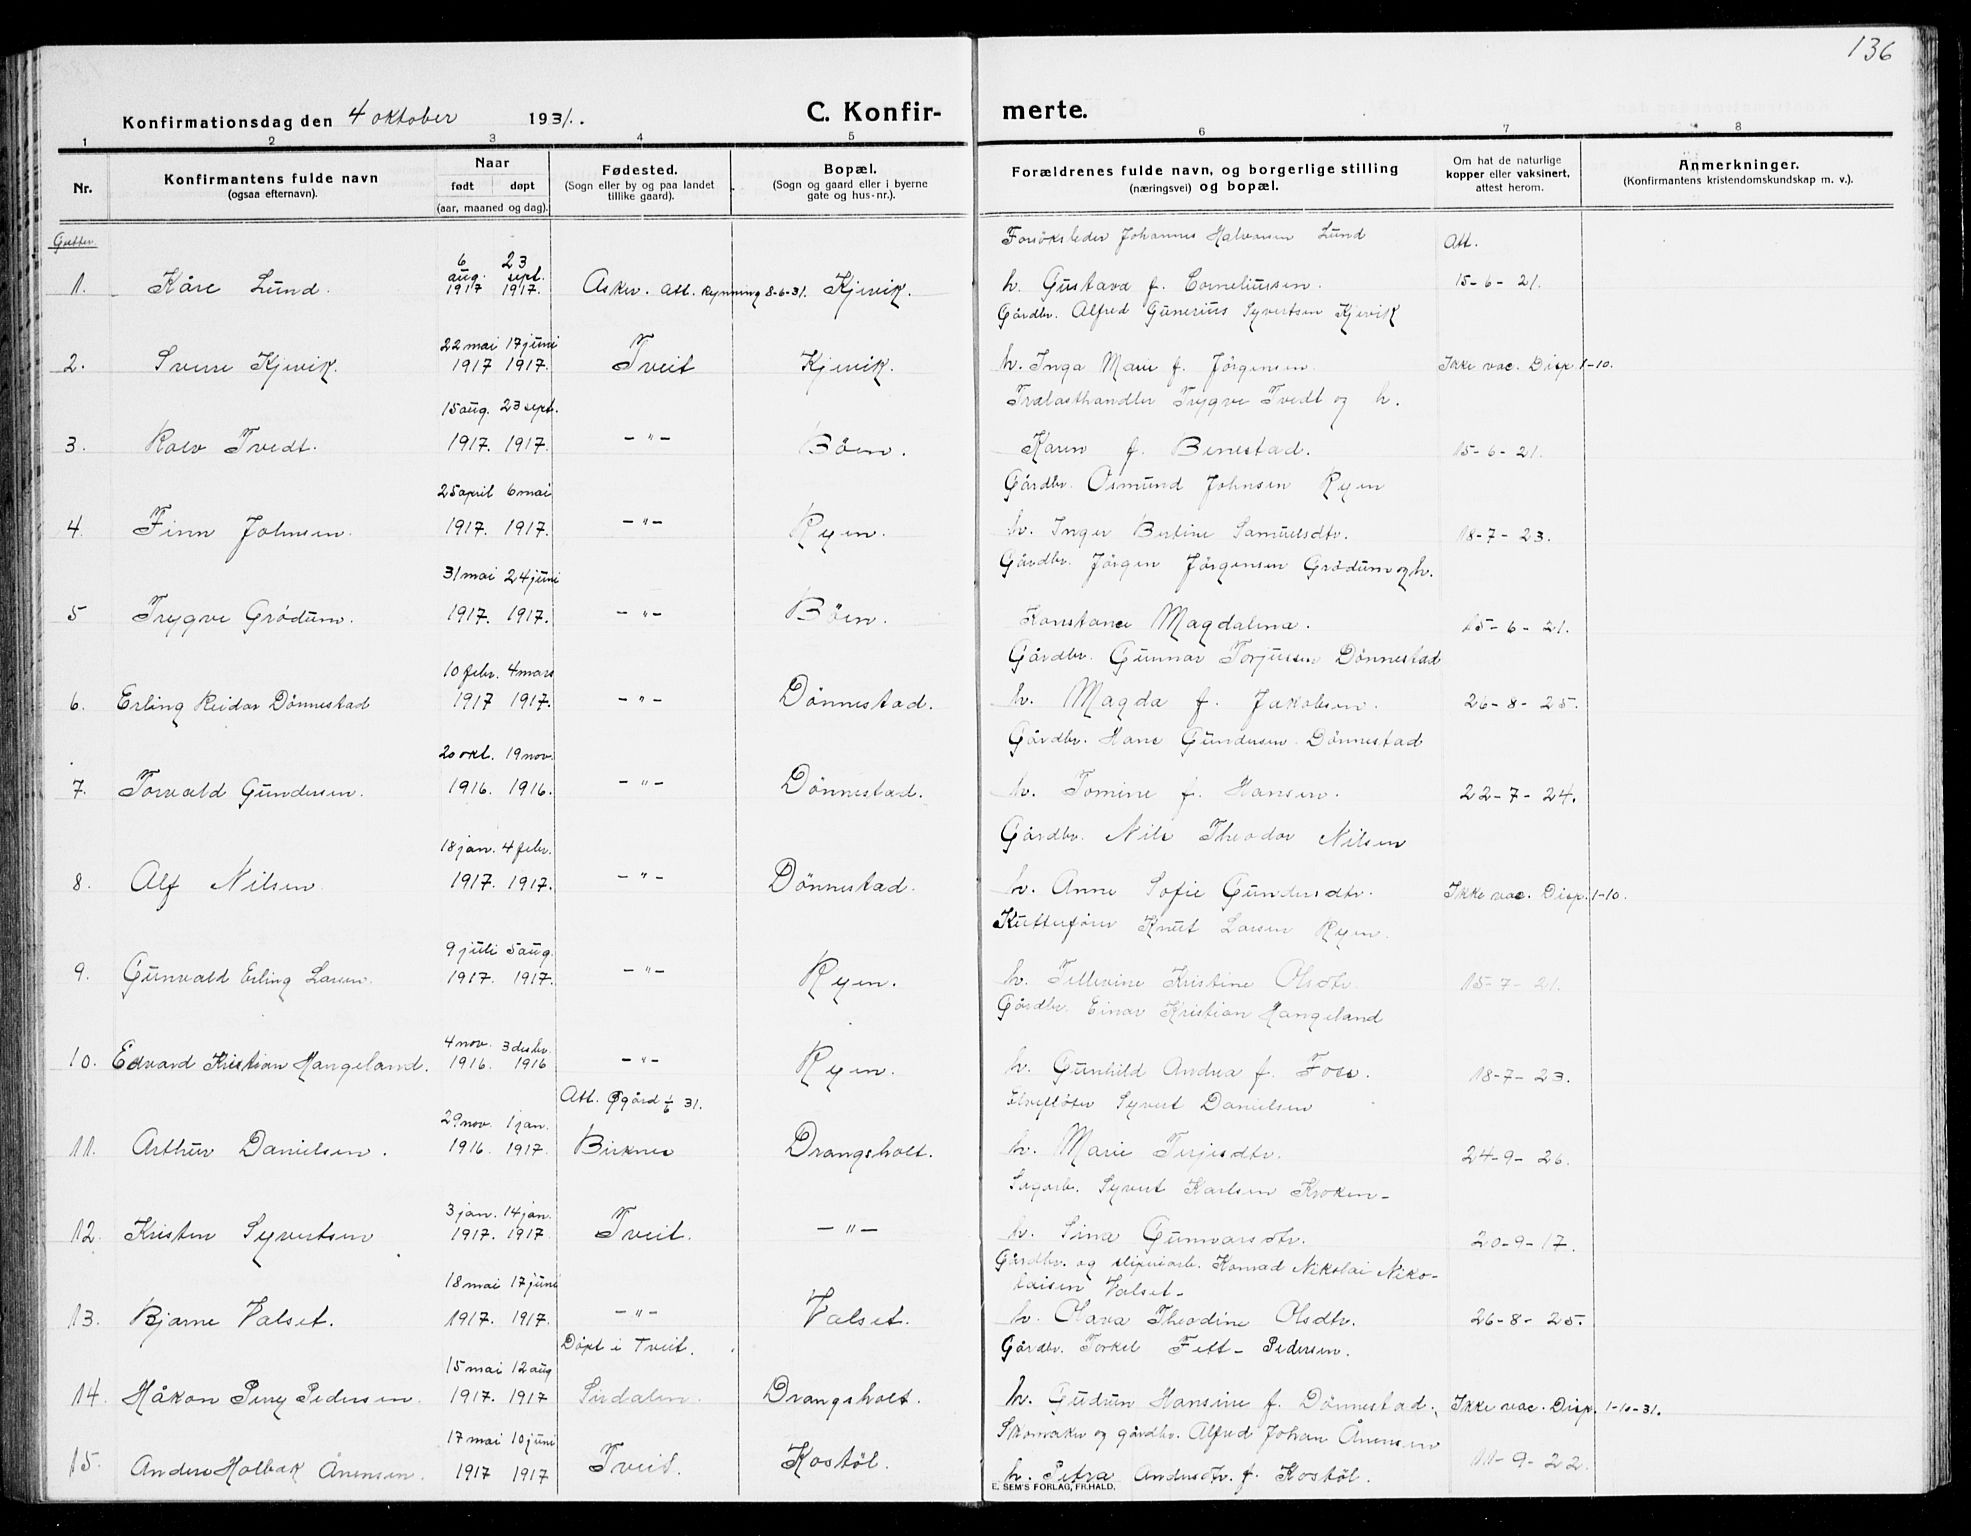 136
Konfirmationsdag den 4 oktober 1931.
C. Konfirmerte.
1 2 3 4 5 6 7 8
Nr.
Konfirmantens fulde navn
(ogsaa efternavn).
Naar
født døpt
(aar, maaned og dag).
Fødested.
(Sogn eller by og paa landet
tillike gaard).
Bopæl.
(Sogn og gaard eller i byerne
gate og hus-nr.).
Forældrenes fulde navn, og borgerlige stilling
(næringsvei) og bopæl.
Om hat de naturlige
kopper eller vaksinert,
attest herom.
Anmerkninger.
(Konfirmantens kristendomskundskap m. v.).
Gutter
Forsøksleder Johannes Halvorsen Lund Att.
6 23
aug. sept.
1. Kåre Lund. 1917 1917. Asker. Att. Rynning 8-6-31. Kjevik. h. Gustava f. Corneliussen. 15-6-21.
Gårdbr. Alfred Gunerius Syvertsen Kjevik
22 mai 17 juni
2. Sverre Kjevik. 1917 1917. Tveit Kjevik. h. Inga Marie f. Jørgensen. Ikke vac. Disp. 1-10.
Trælasthandler Trygve Tvedt og h.
15 aug. 23 sept.
3. Rolv Tvedt. 1917. 1917. -"- Bøen. Karen f. Benestad. 15-6-21.
Gårdbr. Osmund Johnsen Ryen
25 april 6 mai
4 Finn Johnsen. 1917. 1917. -"- Ryen. h. Inger Bertine Samuelsdtr. 18-7-23.
Gårdbr. Jørgen Jørgensen Grødum og h.
31 mai 24 juni
5 Trygve Grødum. 1917. 1917. -"- Bøen. Konstance Magdalena. 15-6-21.
Gårdbr. Gunnar Torjussen Dønnestad
10 febr. 4 mars
6. Erling Reidar Dønnestad 1917 1917. -"- Dønnestad. h. Magda f. Jakobsen. 26-8-25.
Gårdbr. Hans Gundersen Dønnestad
20 okt. 19 nov.
7. Torvald Gundersen. 1916. 1916. -"- Dønnestad. h. Tomine f. Hansen. 22-7-24.
Gårdbr. Nils Theodor Nilsen
18 jan. 4 febr.
8. Alf Nilsen. 1917. 1917. -"- Dønnestad. h. Anne Sofie Gundersdtr. Ikke vac. Disp. 1-10.
Kutterfører Knut Larsen Ryen.
9 juli 5 aug.
9. Gunvald Erling Larsen. 1917. 1917. -"- Ryen. h. Tellevine Kristine Olsdtr. 15-7-21.
Gårdbr. Einar Kristian Hangeland
4 nov. 3 desbr.
10. Edvard Kristian Hangeland. 1916. 1916 -"- Ryen. h. Gunhild Andrea f. Foss. 18-7-23.
Att. 31. Elvefløter Syvert Danielsen
29 nov. 1 jan.
11. Arthur Danielsen. 1916. 1917. Birknes Drangsholt. h. Marie Terjesdtr. 24-9-26.
Sagarb. Syvert Karlsen Kroken-
3 jan. 14 jan.
12. Kristen Syvertsen 1917. 1917. Tveit. -"- h. Sina Gunvarsdtr. 20-9-17.
Gårdbr. og sliperiarb. Konrad Nikolai Niko-
laisen Valset-
18 mai 17 juni
13. Bjarne Valset. 1917. 1917. -"- Valset. h. Olava Theodine Olsdtr. 26-8-25.
Døpt i Tveit. Gårdbr. Torkel Fett- Pedersen.
15 mai 12 aug
14. Håkon Perry Pedersen 1917. 1917 Sirdalen. Drangsholt. h. Gudrun Hansine f. Dønnestad. Ikke vac. Disp. 1-10-31.
Skomaker og gårdbr. Alfred Johan Ånensen
17 mai 10 juni
15. Anders Holbæk Ånensen. 1917 1917 Tveit. Kostøl. h. Petra Andersdtr. f. Kostøl. 11-9-22.
E. SEM'S FORLAG, FR.HALD.